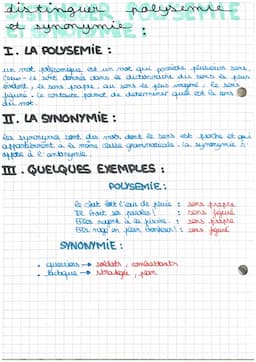 distinguer polysémie
et synonymie :
I. LA POLYSEMIE :
un mot polysémique est un mot qui possède plusieurs sens.
Ceux-ci sont donnés dans le dictionnaire du sens le plus
évident, le sens propre, au sens le plus imagé, le sens
figuré. Le contexte permet de déterminer quel est le sens
du mot.
II. LA SYNONYMIE :
Les synonymes sont des mots dont le sens est proche et qui
appartiennent à la même classe grammaticale. La synonymie s'
oppose à l'antonymie.
III. QUELQUES EXEMPLES :
POLYSEMIE :
le chat boit l'eau de pluie : sens propre
Il boit ses paroles ! : sens figuré
Elles nagent à la piscine. : sens propre
Elles nagent en plein bonheur ! : sens figuré
SYNONYMIE :
• guerriers → soldats, combattants
• tactique → stratégie, plan